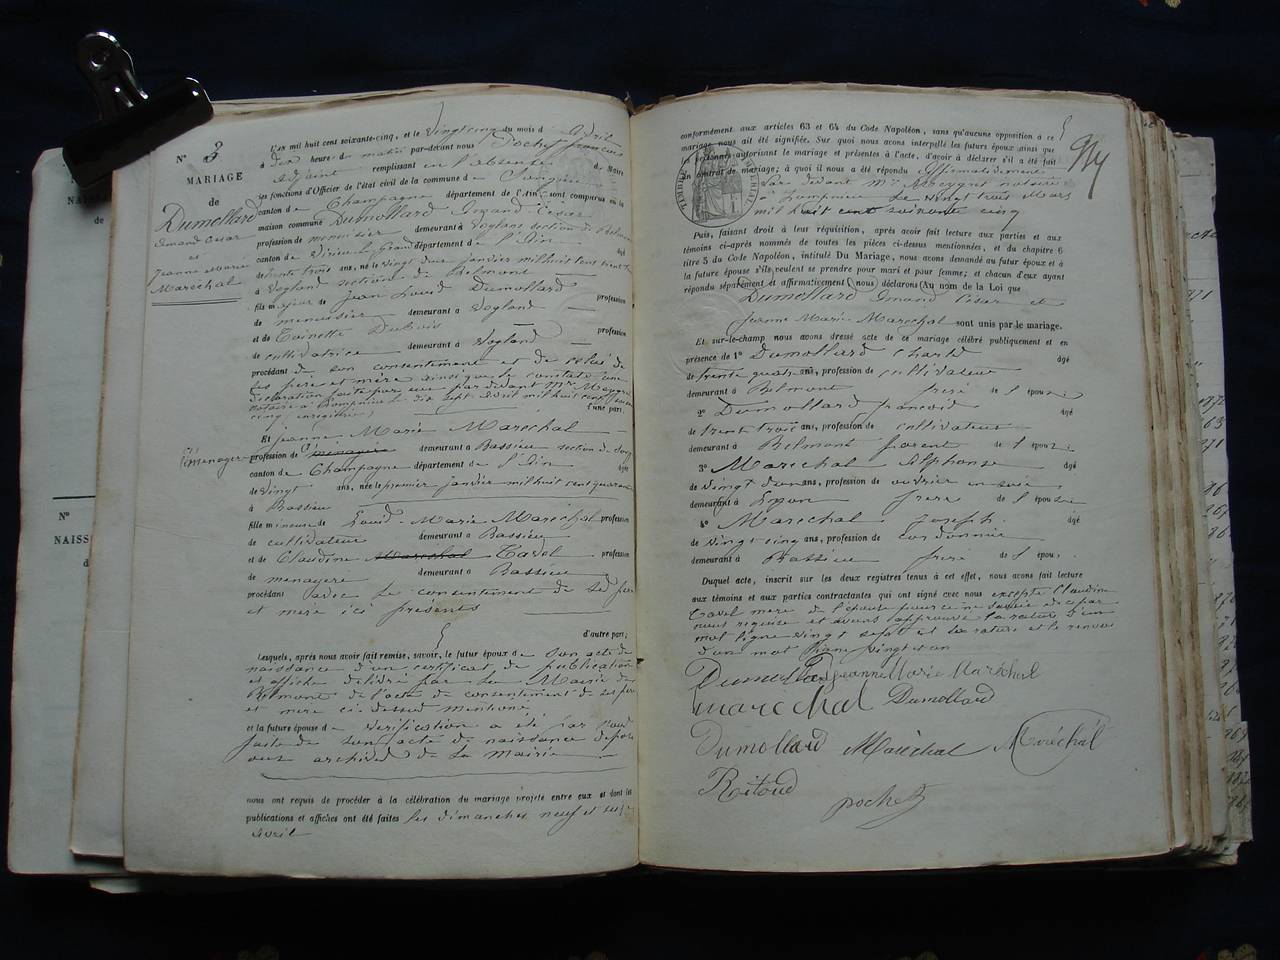 N° 3
MARIAGE
de
Dumollard
Imand César
et
Jeanne Marie
Maréchal
L'an mil huit cent soixante-cinq, et le vingt cinq du mois d'Avril
à dix heures du matin par-devant nous Pochet françois
adjoint remplissant en l'absence de Maire
les fonctions d'Officier de l'état civil de la commune de Songieu
canton de Champagne département de l'Ain, sont comparus en la
maison commune Dumollard Imand César
profession de menuisier demeurant à Vogland section de Belmont
canton de Virieu le grand département de l'Ain âgé
de trente trois ans, né le vingt deux janvier mil huit cent trente
à Vogland section de Belmont
fils majeur de Jean Louis Dumollard profession
de menuisier demeurant à Vogland
et de Toinette Dubois profession
de cultivatrice demeurant à Vogland
procédant de son consentement et de celui de
ses père et mère ainsi que le constate une
déclaration faite par eux par devant Mr Meygret
notaire à Lompnieu le dix sept avril mil huit cent soixante
cinq, enregistrée d'une part,
Et Jeanne Marie Maréchal
profession de menagere demeurant à Bassieu section de Song
menagere
canton de Champagne département de l'Ain âgée
de vingt ans, née le premier janvier mil huit cent quarante
à Bassieu
fille mineure de Louis Marie Maréchal profession
de cultivateur demeurant à Bassieu
et de Claudine Maréchal Cavel profession
de menagere demeurant à Bassieu
procédant avec le consentement de ses père
et mère ici présents
d'autre part;
Lesquels, après nous avoir fait remise, savoir, le futur époux de son acte de
naissance d'un certificat de publication
et affiche délivré par la Mairie de
Belmont de l'acte de consentement de ses père
et mère ci-dessus mentionné
et la future épouse de Verification a été par nous
faite de son acte de naissance déposé
aux archives de la Mairie
nous ont requis de procéder à la célébration du mariage projeté entre eux et dont les
publications et affiches ont été faites les dimanches neuf et seize
avril
conformément aux articles 63 et 64 du Code Napoléon, sans qu'aucune opposition à ce
mariage nous ait été signifiée. Sur quoi nous avons interpellé les futurs époux ainsi que
les personnes autorisant le mariage et présentes à l'acte, d'avoir à déclarer s'il a été fait
un contrat de mariage; à quoi il nous a été répondu Affirmativement
par devant Mr Meygret notaire
à Lompnieu le vingt trois Mars
mil huit cent soixante cinq
TIMBRE IMPÉRIAL
Puis, faisant droit à leur réquisition, après avoir fait lecture aux parties et aux
témoins ci-après nommés de toutes les pièces ci-dessus mentionnées, et du chapitre 6
titre 5 du Code Napoléon, intitulé Du Mariage, nous avons demandé au futur époux et à
la future épouse s'ils veulent se prendre pour mari et pour femme; et chacun d'eux ayant
répondu séparément et affirmativement, nous déclarons Au nom de la Loi que
Dumollard Imand César et
Jeanne Marie Maréchal sont unis par le mariage.
Et sur-le-champ nous avons dressé acte de ce mariage célébré publiquement et en
présence de 1° Dumollard Charles âgé
de trente quatre ans, profession de cultivateur
demeurant à Belmont frère de l'époux;
2° Dumollard françois âgé
de trente trois ans, profession de cultivateur
demeurant à Belmont parent de l'époux;
3° Maréchal Alphonse âgé
de vingt deux ans, profession de ouvrier en soie
demeurant à Lyon frère de l'épouse
4° Maréchal Joseph âgé
de vingt cinq ans, profession de cordonnier
demeurant à Bassieu frère de l'épou.
Duquel acte, inscrit sur les deux registres tenus à cet effet, nous avons fait lecture
aux témoins et aux parties contractantes qui ont signé avec nous excepté Claudine
Cavel mère de l'épouse pour ne savoir de ce par
nous requise et avons approuvé la rature d'un
mot ligne vingt sept et la rature et le renvoi
d'un mot ligne vingt et un
Dumollard Jeanne Marie Maréchal
marechal Dumollard
Dumollard Maréchal Maréchal
Ritoud
pochet
N°
NAISS